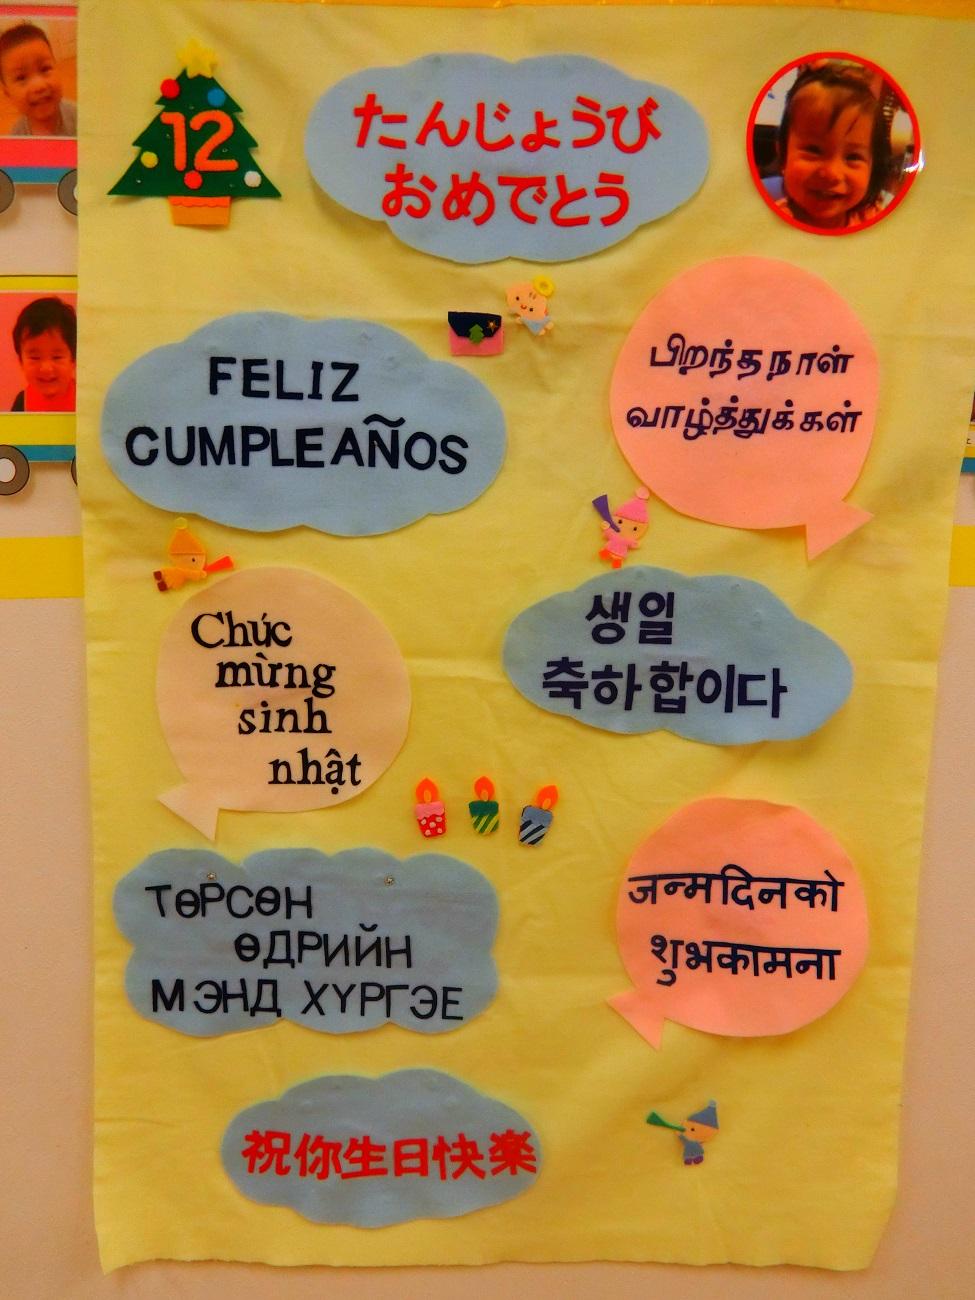 12
たんじょうび
おめでとう
FELIZ
CUMPLEAÑOS
பிறந்தநாள்
வாழ்த்துக்கள்
Chúc
mừng
sinh
nhật
생일
축하합이다
ТӨРСӨН
ӨДРИЙН
МЭНД ХҮРГЭЕ
जन्मदिनको
शुभकामना
祝你生日快楽